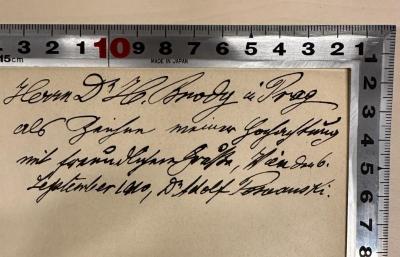 3 2 1 10 9 8 7 6 5 4 3 2 1
15cm MADE IN JAPAN
Herrn Dr H. Brody in Prag
als Zeichen meiner Hochachtung
mit freundlichem Gruße, Wien d. 6.
September 1910, Dr Adolf Posnanski.
1 2 3 4 5 6 7 8